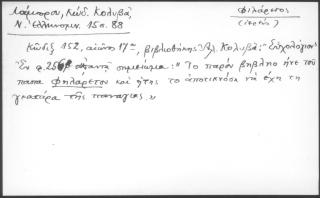 Λάμπρου, Κώδ. Κολυβᾶ,
Ν. Ἑλληνομν. 15ος. 88
Φιλάρετος
(ἱερεύς)
Κώδιξ 152, αἰῶνος 17ου, βιβλιοθήκης Ἀλ. Κολυβᾶ: "Εὐχολόγιον"
"Ἐν φ. 256β σημείωμα: "Το παρόν βηβληο ήνε τού
παπα Φηλάρετου καί ήτης το αποτεικνόσι νά έχη τη
γκατάρα τής παναγιας"